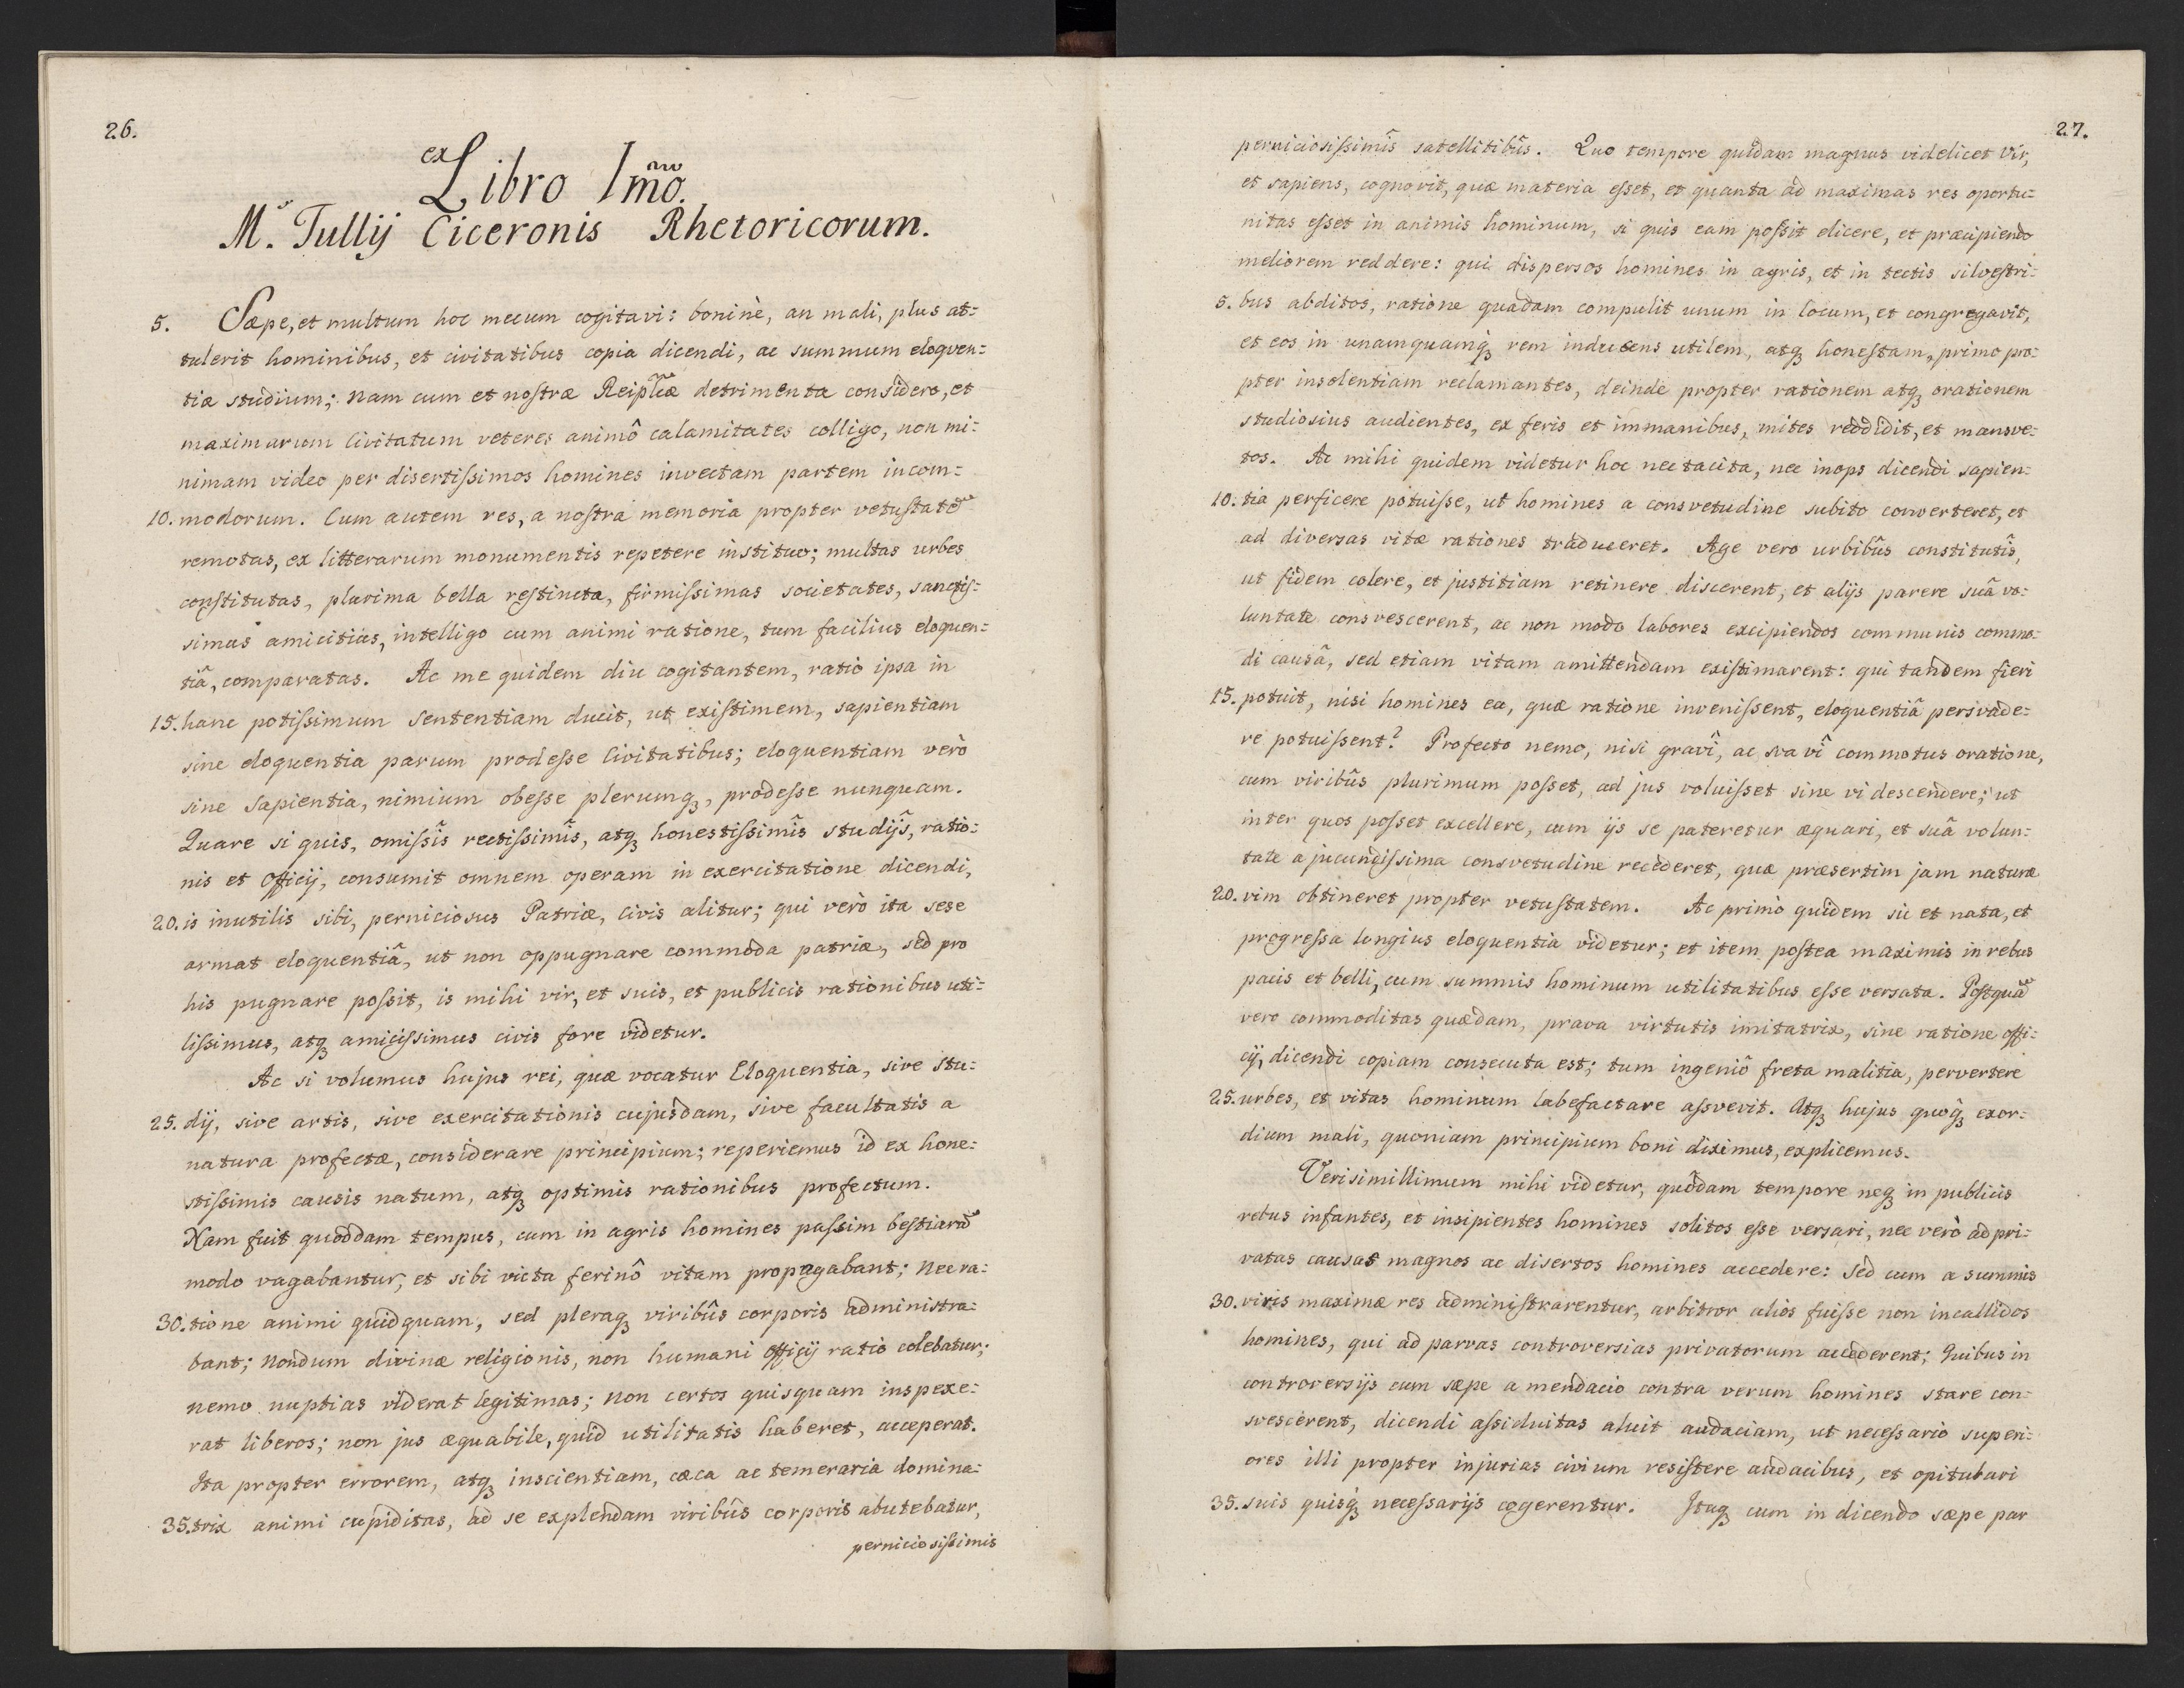 26.
ex Libro Imo.
M. Tullij Ciceronis Rhetoricorum.
5. Sæpe, et multum hoc mecum cogitavi: boninè, an mali, plus at=
tulerit hominibus, et civitatibus copia dicendi, ac summum eloqven=
tiæ studium; nam cum et nostræ Reiplicæ detrimenta considero, et
maximarum Civitatum veteres animô calamitates colligo, non mi=
nimam video per disertissimos homines invectam partem incom=
10. modorum. Cum autem res, a nostra memoria propter vetustatẽ
remotas, ex litterarum monumentis repetere instituo; multas urbes
constitutas, plurima bella restincta, firmissimas societates, sanctis=
simas amicitias, intelligo cum animi ratione, tum facilius eloquen=
tiâ, comparatas. Ac me quidem diu cogitantem, ratio ipsa in
15. hanc potissimum sententiam ducit, ut existimem, sapientiam
sine eloquentia parum prodesse Civitatibus; eloquentiam verò
sine sapientia, nimium obesse plerumqꝫ, prodesse nunquam.
Quare si quis, omissîs rectissimîs, atqꝫ honestissimîs studijs, ratio=
nis et Officij, consumit omnem operam in exercitatione dicendi,
20. is inutilis sibi, perniciosus Patriæ, civis alitur; qui verò ita sese
armat eloquentiâ, ut non oppugnare commoda patriæ, sed pro
his pugnare possit, is mihi vir, et suis, et publicis rationibus uti=
lissimus, atqꝫ amicissimus civis fore videtur.
Ac si volumus hujus rei, quæ vocatur Eloquentia, sive stu=
25. dij, sive artis, sive exercitationis cujusdam, sive facultatis a
natura profectæ, considerare principium; reperiemus id ex hone=
stissimis causis natum, atqꝫ optimis rationibus profectum.
Nam fuit quoddam tempus, cum in agris homines passim bestiarũ
modo vagabantur, et sibi victu ferinô vitam propagabant; Nec ra=
30. tione animi quidquam, sed pleraqꝫ viribûs corporis administra=
bant; Nondum divinæ religionis, non humani Officij ratio colebatur;
nemo nuptias viderat legitimas; non certos quisquam inspexe=
rat liberos; non jus æquabile, quid utilitatis haberet, acceperat.
Ita propter errorem, atqꝫ inscientiam, cæca ac temeraria domina=
35. trix animi cupiditas, ad se explendam viribûs corporis abutebatur,
perniciosissimis
27.
perniciosissimîs satellitibûs. Quo tempore quidam magnus videlicet vir,
et sapiens, cognovit, quæ materia esset, et quanta ad maximas res oportu=
nitas esset in animis hominum, si quis eam possit elicere, et præcipiendo
meliorem reddere: qui dispersos homines in agris, et in tectis silvestri=
5. bus abditos, ratione quadam compulit unum in locum, et congregavit,
et eos in unamquamqꝫ rem inducens utilem, atqꝫ honestam, primo pro=
pter insolentiam reclamantes, deinde propter rationem atqꝫ orationem
studiosius audientes, ex feris et immanibus, mites reddidit, et mansve=
tos. Ac mihi quidem videtur hoc nec tacita, nec inops dicendi sapien=
10. tia perficere potuisse, ut homines a consvetudine subito converteret, et
ad diversas vitæ rationes traduceret. Age vero urbibûs constitutîs,
ut fidem colere, et justitiam retinere discerent, et alijs parere suâ vo=
luntate consvescerent, ac non modo labores excipiendos communis commo=
di causâ, sed etiam vitam amittendam existimarent: qui tandem fieri
15. potuit, nisi homines ea, quæ ratione invenissent, eloquentiâ persvade=
re potuissent? Profecto nemo, nisi gravî, ac svavî commotus oratione,
cum viribûs plurimum posset, ad jus voluisset sine vi descendere; ut
inter quos posset excellere, cum ijs se pateretur æquari, et suâ volun=
tate a jucundissima consvetudine recederet, quæ præsertim jam naturæ
20. vim obtineret propter vetustatem. Ac primò quidem sic et nata, et
progressa longius eloquentia videtur; et item postea maximis in rebus
pacis et belli, cum summis hominum utilitatibus esse versata. Postquã
vero commoditas quædam, prava virtutis imitatrix, sine ratione offi=
cij, dicendi copiam consecuta est; tum ingeniô freta malitia, pervertere
25. urbes, et vitas hominum labefactare assvevit. Atqꝫ hujus quoqꝫ exor=
dium mali, quoniam principium boni diximus, explicemus.
Verisimillimum mihi videtur, quôdam tempore neqꝫ in publicis
rebus infantes, et insipientes homines solitos esse versari, nec verò ad pri=
vatas causas magnos ac disertos homines accedere: sed cum a summis
30. viris maximæ res administrarentur, arbitror alios fuisse non incallidos
homines, qui ad parvas controversias privatorum accederent; Quibus in
controversijs cum sæpe a mendacio contra verum homines stare con=
svescerent, dicendi assiduitas aluit audaciam, ut necessario superi=
ores illi propter injurias civium resistere audacibus, et opitulari
35. suis quisqꝫ necessarijs cogerentur. Itaqꝫ cum in dicendo sæpe par